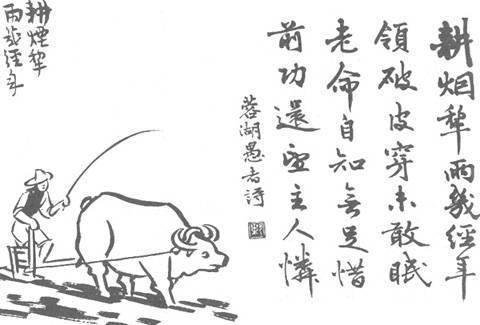 耕烟犂雨幾經年
領破皮穿未敢眠
老命自知無足惜
前功還望主人憐
蓉湖愚者詩
耕煙犂
雨幾經年